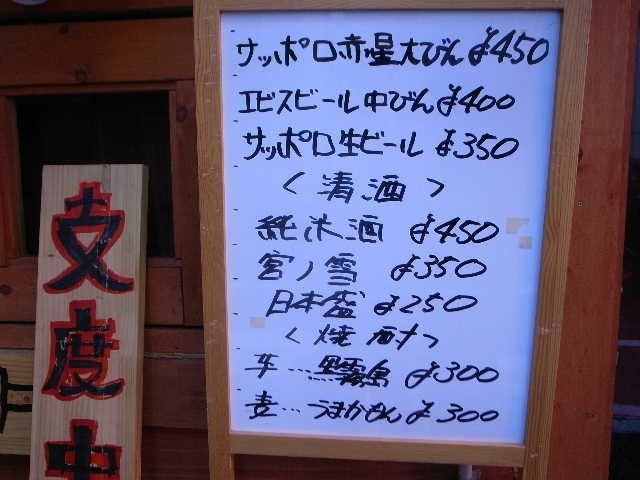 サッポロ赤星大びん ¥450
エビスビール中びん ¥400
サッポロ生ビール ¥350
〈清酒〉
純米酒 ¥450
宮ノ雪 ¥350
日本盛 ¥250
〈焼酎〉
芋…黒霧島 ¥300
麦…うまかもん ¥300
支度中